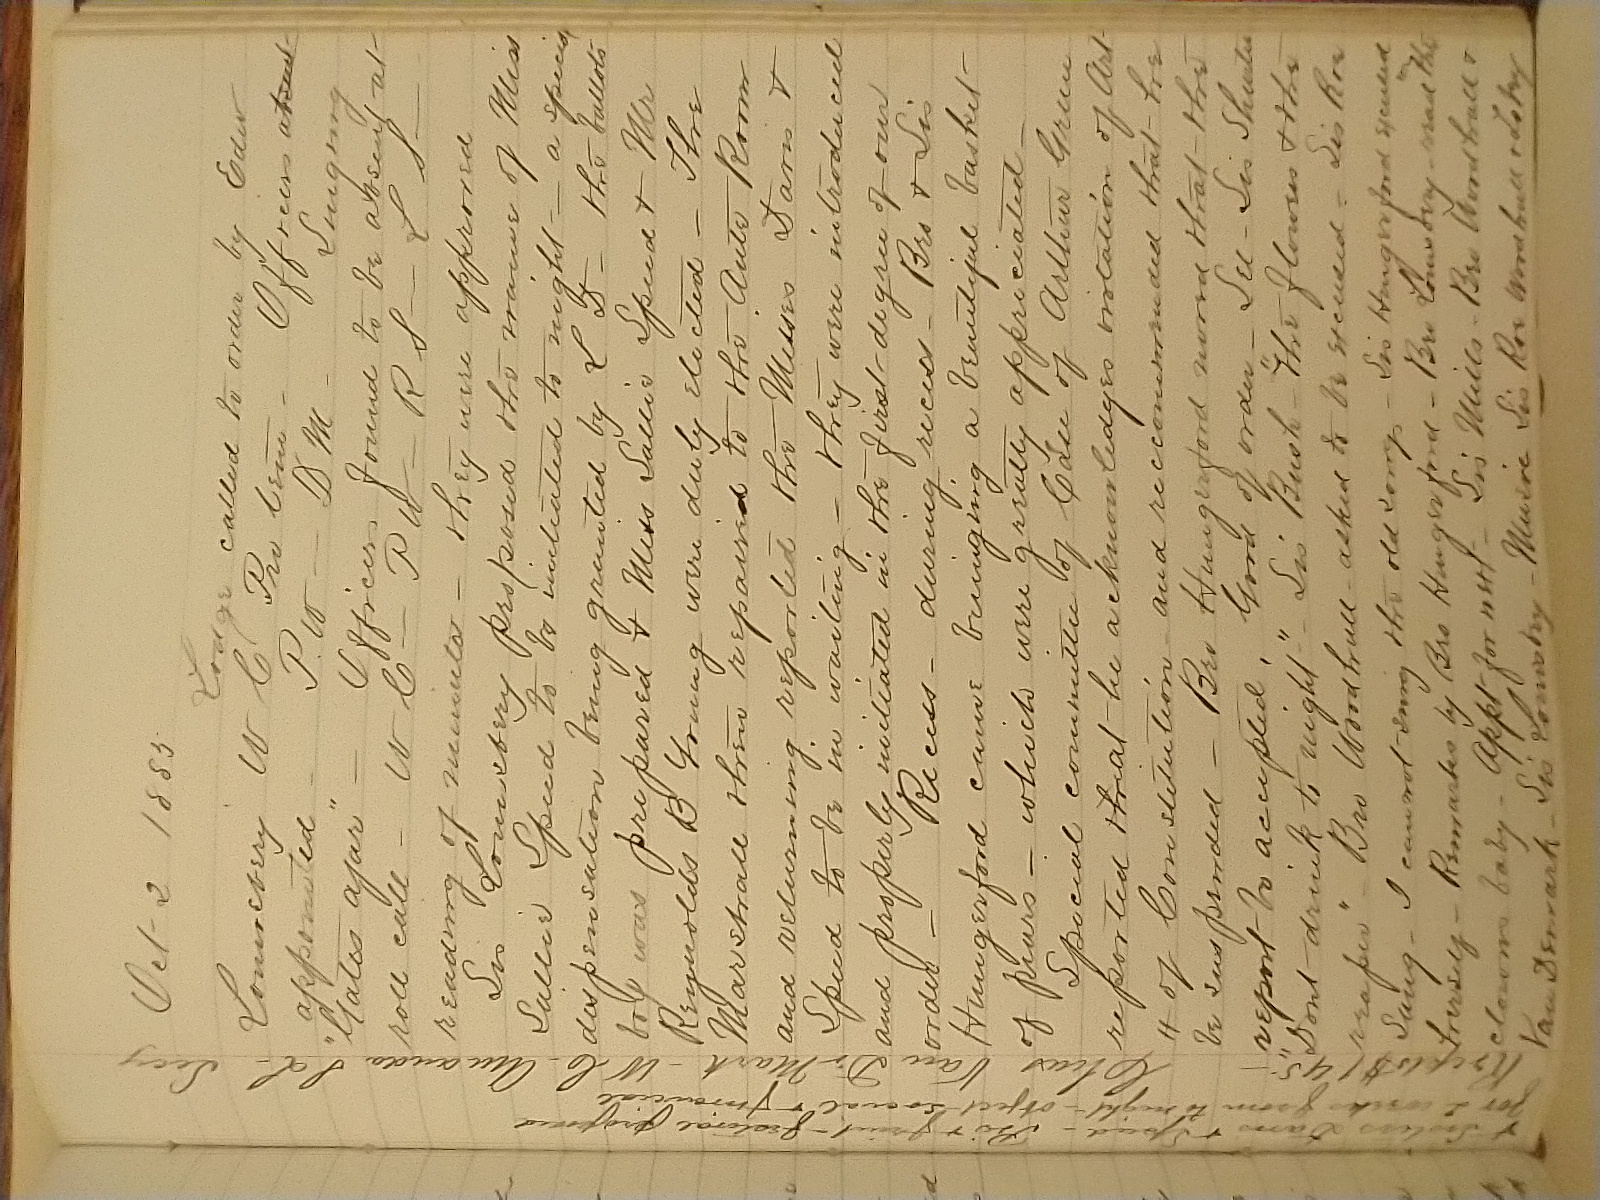 Oct 2 1885
Lodge called to order by Edw
Lounsbery W C Pro tem - Officers absent
appointed - P.W - D M - Singing
"Gates ajar" - Officers found to be absent at
roll call - W C - P W - R S - L S -
reading of minutes - they were approved
Sis Lounsbery proposed the name of Miss
Sallie Speed to be initiated to night - a special
dispensation being granted by L D - the ballots
box was prepared & Miss Sallie Speed & Mr
Reynolds B Young were duly elected - The
Marshall then repaired to the Ante Room
and returning reported the Misses Davis &
Speed to be in waiting - they were introduced
and properly initiated in the first degree of our
order - Recess - during recess - Bro & Sis
Hungerford came bringing a beautiful basket
of pears - which were greatly appreciated -
Special committee of Case of Arthur Green
reported that he acknowledges violation of Art
of Constitution and reccommended that he
be suspended - Bro Hungerford moved that the
report be accepted. Good of order - Sel - Sis Shurter
Dont drink to night" - Sis Bush - "The flowers & the
reaper" - Bro Woodhull - asked to be excused - Sis Roe
Sang - I cannot sing the old songs - Sis Hungerford excused
herself - Remarks by Bro Hungerford - Bro Lounsbery - read "The
clowns baby - Appt for next - Sis Mills - Bro Woodhull &
Van Demark - Sis Lounsbery - Music Sis Roe Woodhull &
& Sisters Davis & Speed - festival proposed
for 2 weeks from to night - object social & financial
Recpts $1.45 - Chas Van De Mark - W C - Amanda S L - Secy